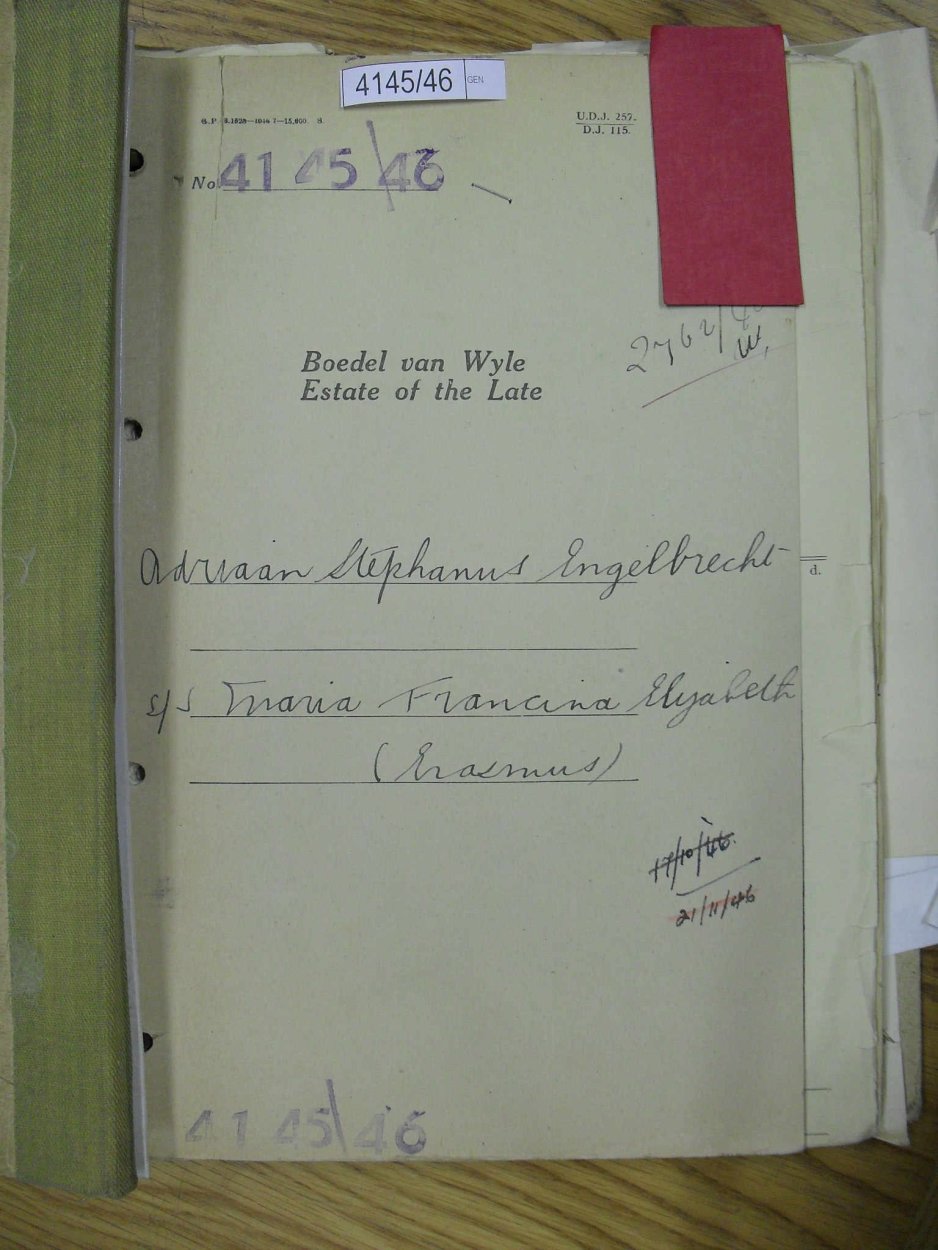 4145/46 GEN
G.P.-S.1828—1946-7—15,000. S.
U.D.J. 257.
D.J. 115.
No. 4145/46
2762/4
Boedel van Wyle
Estate of the Late
Adriaan Stephanus Engelbrecht
d.
s/s Maria Francina Elizabeth
(Erasmus)
17/10/46.
21/11/46
4145/46